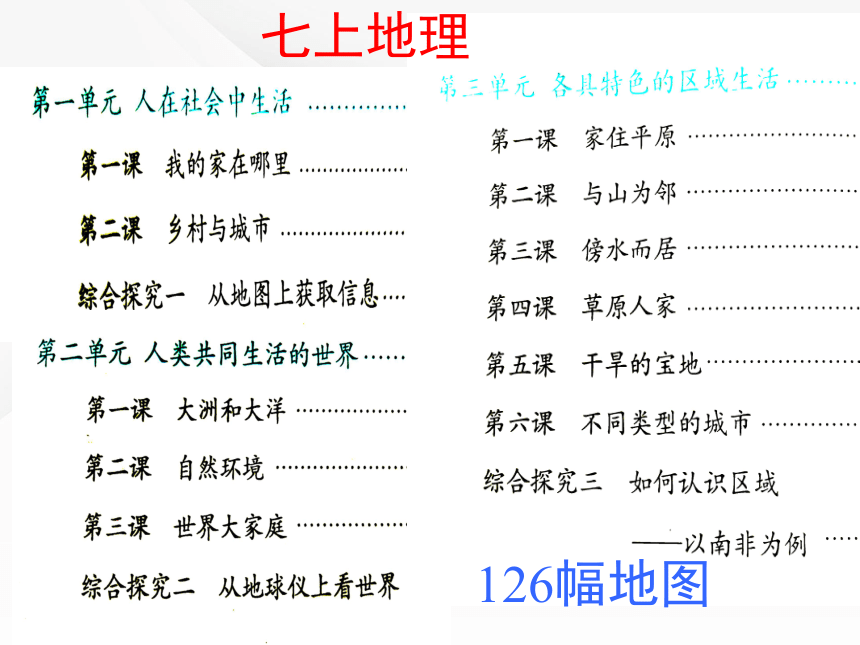 七上地理
第一单元 人在社会中生活 ……………
第一课 我的家在哪里 ………………
第二课 乡村与城市 ………………
综合探究一 从地图上获取信息……
第二单元 人类共同生活的世界……
第一课 大洲和大洋 ………………
第二课 自然环境 ………………
第三课 世界大家庭 ………………
综合探究二 从地球仪上看世界
第三单元 各具特色的区域生活 …………
第一课 家住平原 ………………
第二课 与山为邻 ………………
第三课 傍水而居 ………………
第四课 草原人家 ………………
第五课 干旱的宝地………………
第六课 不同类型的城市 …………
综合探究三 如何认识区域
——以南非为例 ……
126幅地图